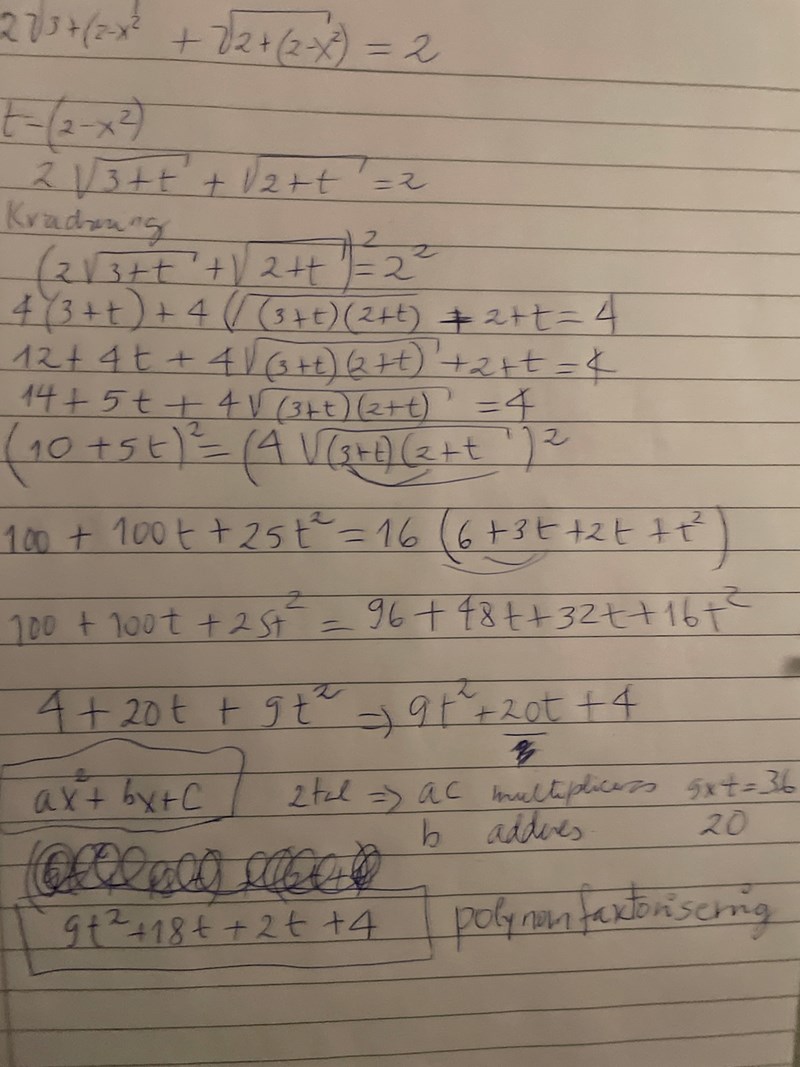 2√3+(2-x² + √2+(2-x²) = 2
t=(2-x²)
2√3+t + √2+t = 2
(2√3+t + √2+t)² = 2²
4(3+t) + 4(√(3+t)(2+t) + 2+t = 4
12 + 4t + 4√(3+t)(2+t) + 2+t = 4
14 + 5t + 4√(3+t)(2+t) = 4
(10 + 5t)² = (4√(3+t)(2+t)²
100 + 100t + 25t² = 16 (6+3t+2t+t²)
100 + 100t + 25t² = 96 + 48t + 32t + 16t²
4 + 20t + 9t² => 9t² + 20t + 4
ax²+bx+C 2tal => ac multipliceras = 36
b adderas 20
9t²+18t+2t+4 polynomfaxtorisering